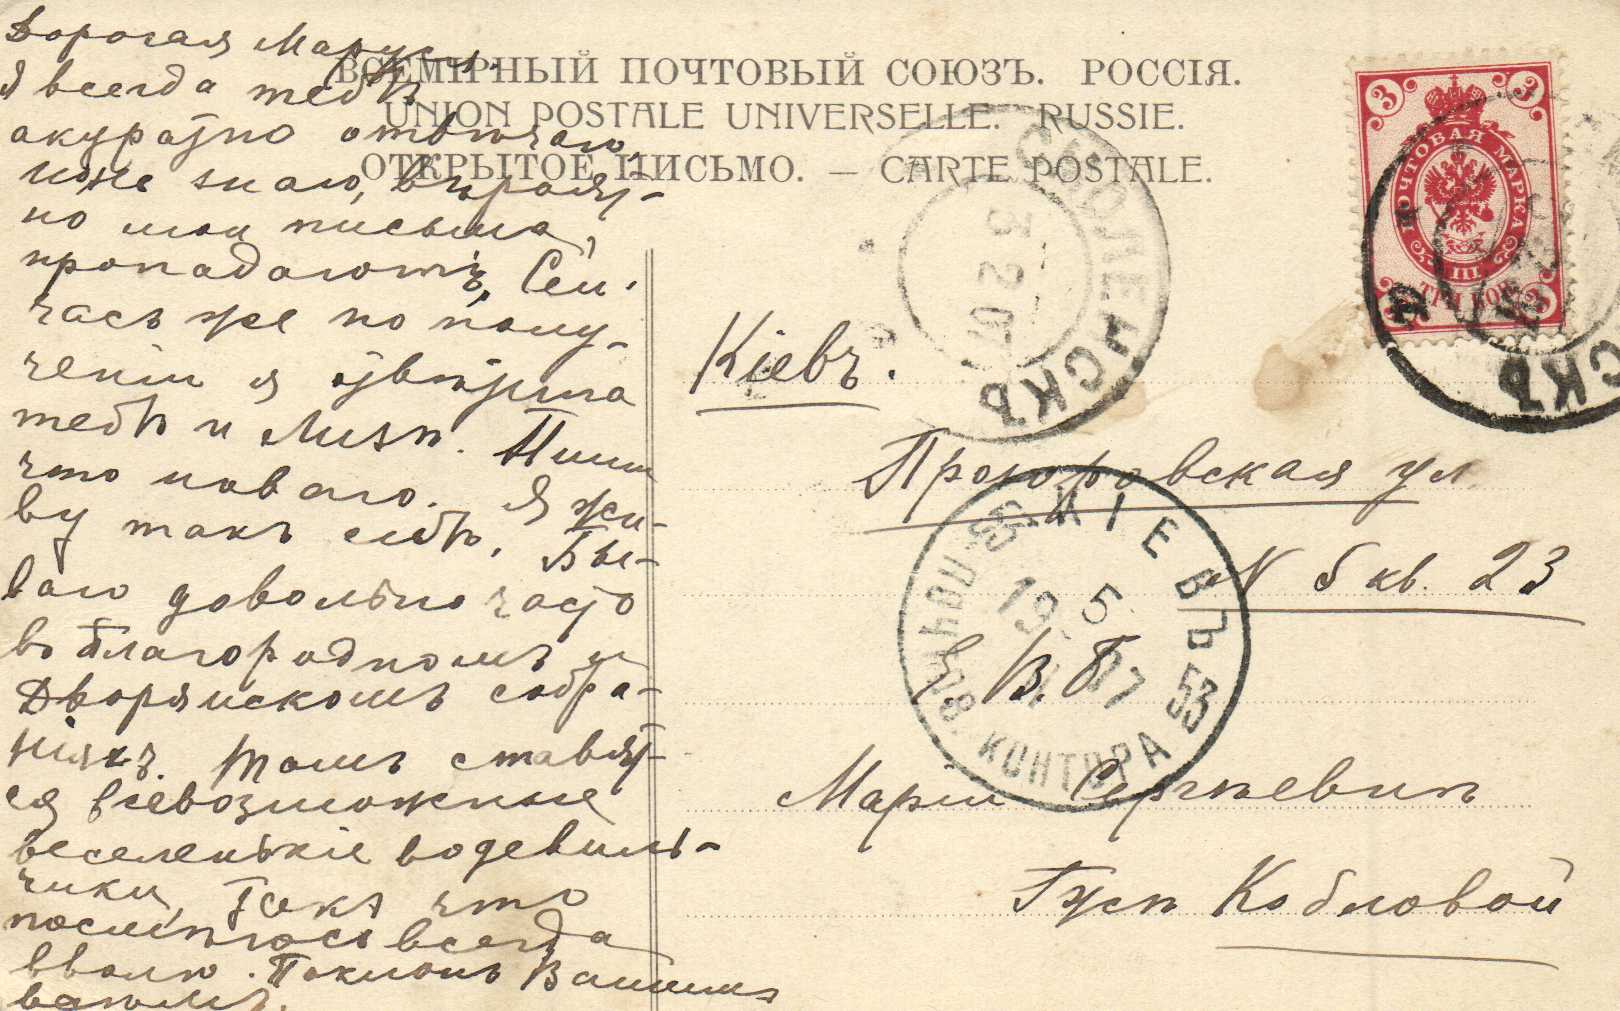 Дорогая Маруся.
Я всегда тебѣ
акуратно отвѣчаю,
но знаю, вѣроят-
но мои письма,
пропадаютъ, Сей-
часъ же по полу-
ченіи я отвѣтила
тебѣ и Лизѣ. Пиши
что новаго. Я жи-
ву такъ себѣ, Бы-
ваю довольно часто
въ Благородномъ и
Дворянскомъ собра-
ніяхъ. Тамъ ставят-
ся всевозможные
веселенькіе водевиль-
чики, такъ что
посмѣюсь всегда
вволю. Поклонъ Вашимъ
всѣмъ.
ВСЕМІРНЫЙ ПОЧТОВЫЙ СОЮЗЪ. РОССІЯ.
UNION POSTALE UNIVERSELLE. RUSSIE.
ОТКРЫТОЕ ПИСЬМО. — CARTE POSTALE.
3 3
ПОЧТОВАЯ МАРКА
III
ТРИ КОП.
3 3
СМОЛЕНСКЪ
3 2 07
СКЪ
Кіевъ.
Прорѣзная ул
N 5 кв. 23
КІЕВЪ 53
5
19 07
КОНТОРА
В. Б.
Маріи Сергѣевнѣ
Гжѣ Кобловой